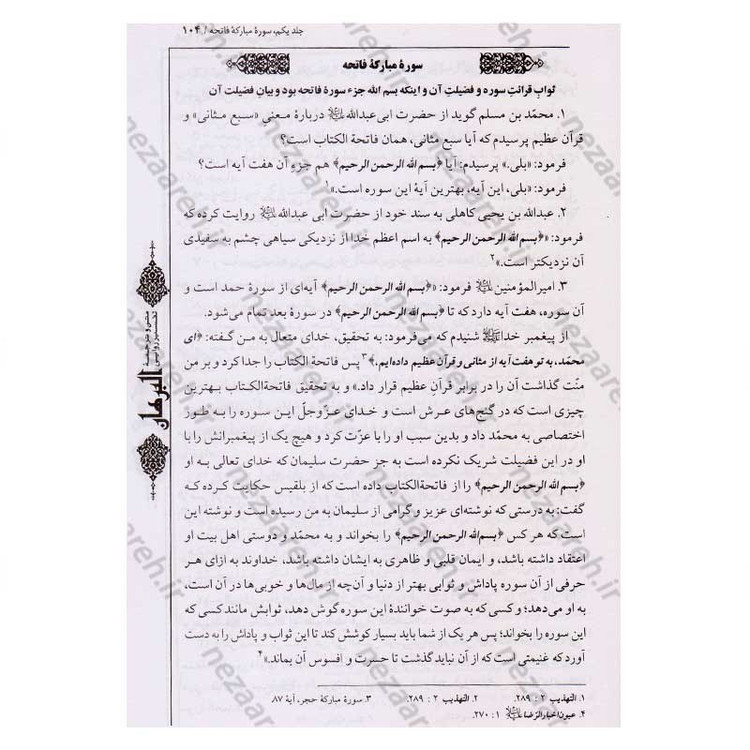 جلد یکم، سورهٔ مبارکهٔ فاتحه / ۱۰۴
سورهٔ مبارکهٔ فاتحه
ثوابِ قرائتِ سوره و فضیلتِ آن و اینکه بسم الله جزء سورهٔ فاتحه بود و بیانِ فضیلت آن
۱. محمّد بن مسلم گوید از حضرت ابی‌عبدالله علیه السلام دربارهٔ معنیِ «سبع مثانی» و
قرآن عظیم پرسیدم که آیا سبع مثانی، همان فاتحة الکتاب است؟
فرمود: «بلی.» پرسیدم: آیا ﴿بسم الله الرحمن الرحیم﴾ هم جزءِ آن هفت آیه است؟
فرمود: «بلی، این آیه، بهترین آیهٔ این سوره است.»۱
۲. عبدالله بن یحیی کاهلی به سند خود از حضرت ابی عبدالله علیه السلام روایت کرده که
فرمود: «﴿بسم الله الرحمن الرحیم﴾ به اسم اعظم خدا از نزدیکی سیاهی چشم به سفیدی
آن نزدیکتر است.»۲
۳. امیرالمؤمنین علیه السلام فرمود: «﴿بسم الله الرحمن الرحیم﴾ آیه‌ای از سورهٔ حمد است و
آن سوره، هفت آیه دارد که تا ﴿بسم الله الرحمن الرحیم﴾ در سورهٔ بعد تمام می‌شود.
از پیغمبر خدا ﷺ شنیدم که می‌فرمود: به تحقیق، خدای متعال به من گفته: ﴿ای
محمّد، به تو هفت آیه از مثانی و قرآن عظیم داده‌ایم.﴾۳ پس فاتحة الکتاب را جدا کرد و بر من
منّت گذاشت آن را در برابر قرآنِ عظیم قرار داد.» و به تحقیق فاتحةالکتاب بهترین
چیزی است که در گنج‌های عرش است و خدای عزّوجلّ این سوره را به طور
اختصاصی به محمّد داد و بدین سبب او را با عزّت کرد و هیچ یک از پیغمبرانش را با
او در این فضیلت شریک نکرده است به جز حضرت سلیمان که خدای تعالی به او
﴿بسم الله الرحمن الرحیم﴾ را از فاتحةالکتاب داده است که از بلقیس حکایت کرده که
گفت: به درستی که نوشته‌ای عزیز و گرامی از سلیمان به من رسیده است و نوشته این
است که هر کس ﴿بسم الله الرحمن الرحیم﴾ را بخواند و به محمّد و دوستی اهل بیت او
اعتقاد داشته باشد، و ایمان قلبی و ظاهری به ایشان داشته باشد، خداوند به ازای هر
حرفی از آن سوره پاداش و ثوابی بهتر از دنیا و آن‌چه از مال‌ها و خوبی‌ها در آن است،
به او می‌دهد؛ و کسی که به صوت خوانندهٔ این سوره گوش دهد، ثوابش مانند کسی که
این سوره را بخواند؛ پس هر یک از شما باید بسیار کوشش کند تا این ثواب و پاداش را به دست
آورد که غنیمتی است که از آن نباید گذشت تا حسرت و افسوس آن بماند.»۴
۱. التهذیب ۲ : ۲۸۹. ۲. التهذیب ۲ : ۲۸۹. ۳. سورهٔ مبارکهٔ حجر، آیهٔ ۸۷.
۴. عیون اخبار الرّضا علیه السلام ۱ : ۲۷۰.
متن و ترجمهٔ
تفسیر روایی
البرهان
nezaareh.ir